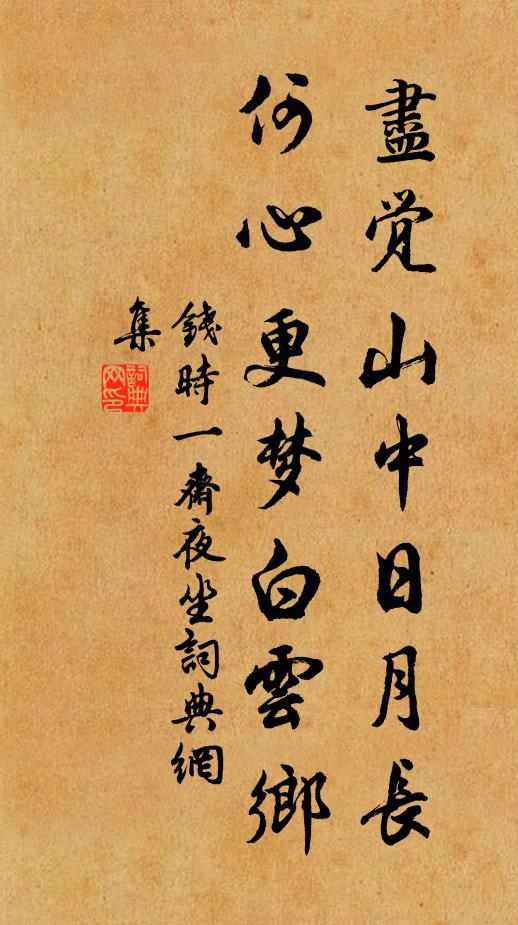 盡觉山中日月長
何心更梦白雲鄉
錢時一齋夜坐詞典網
集
詞典網印